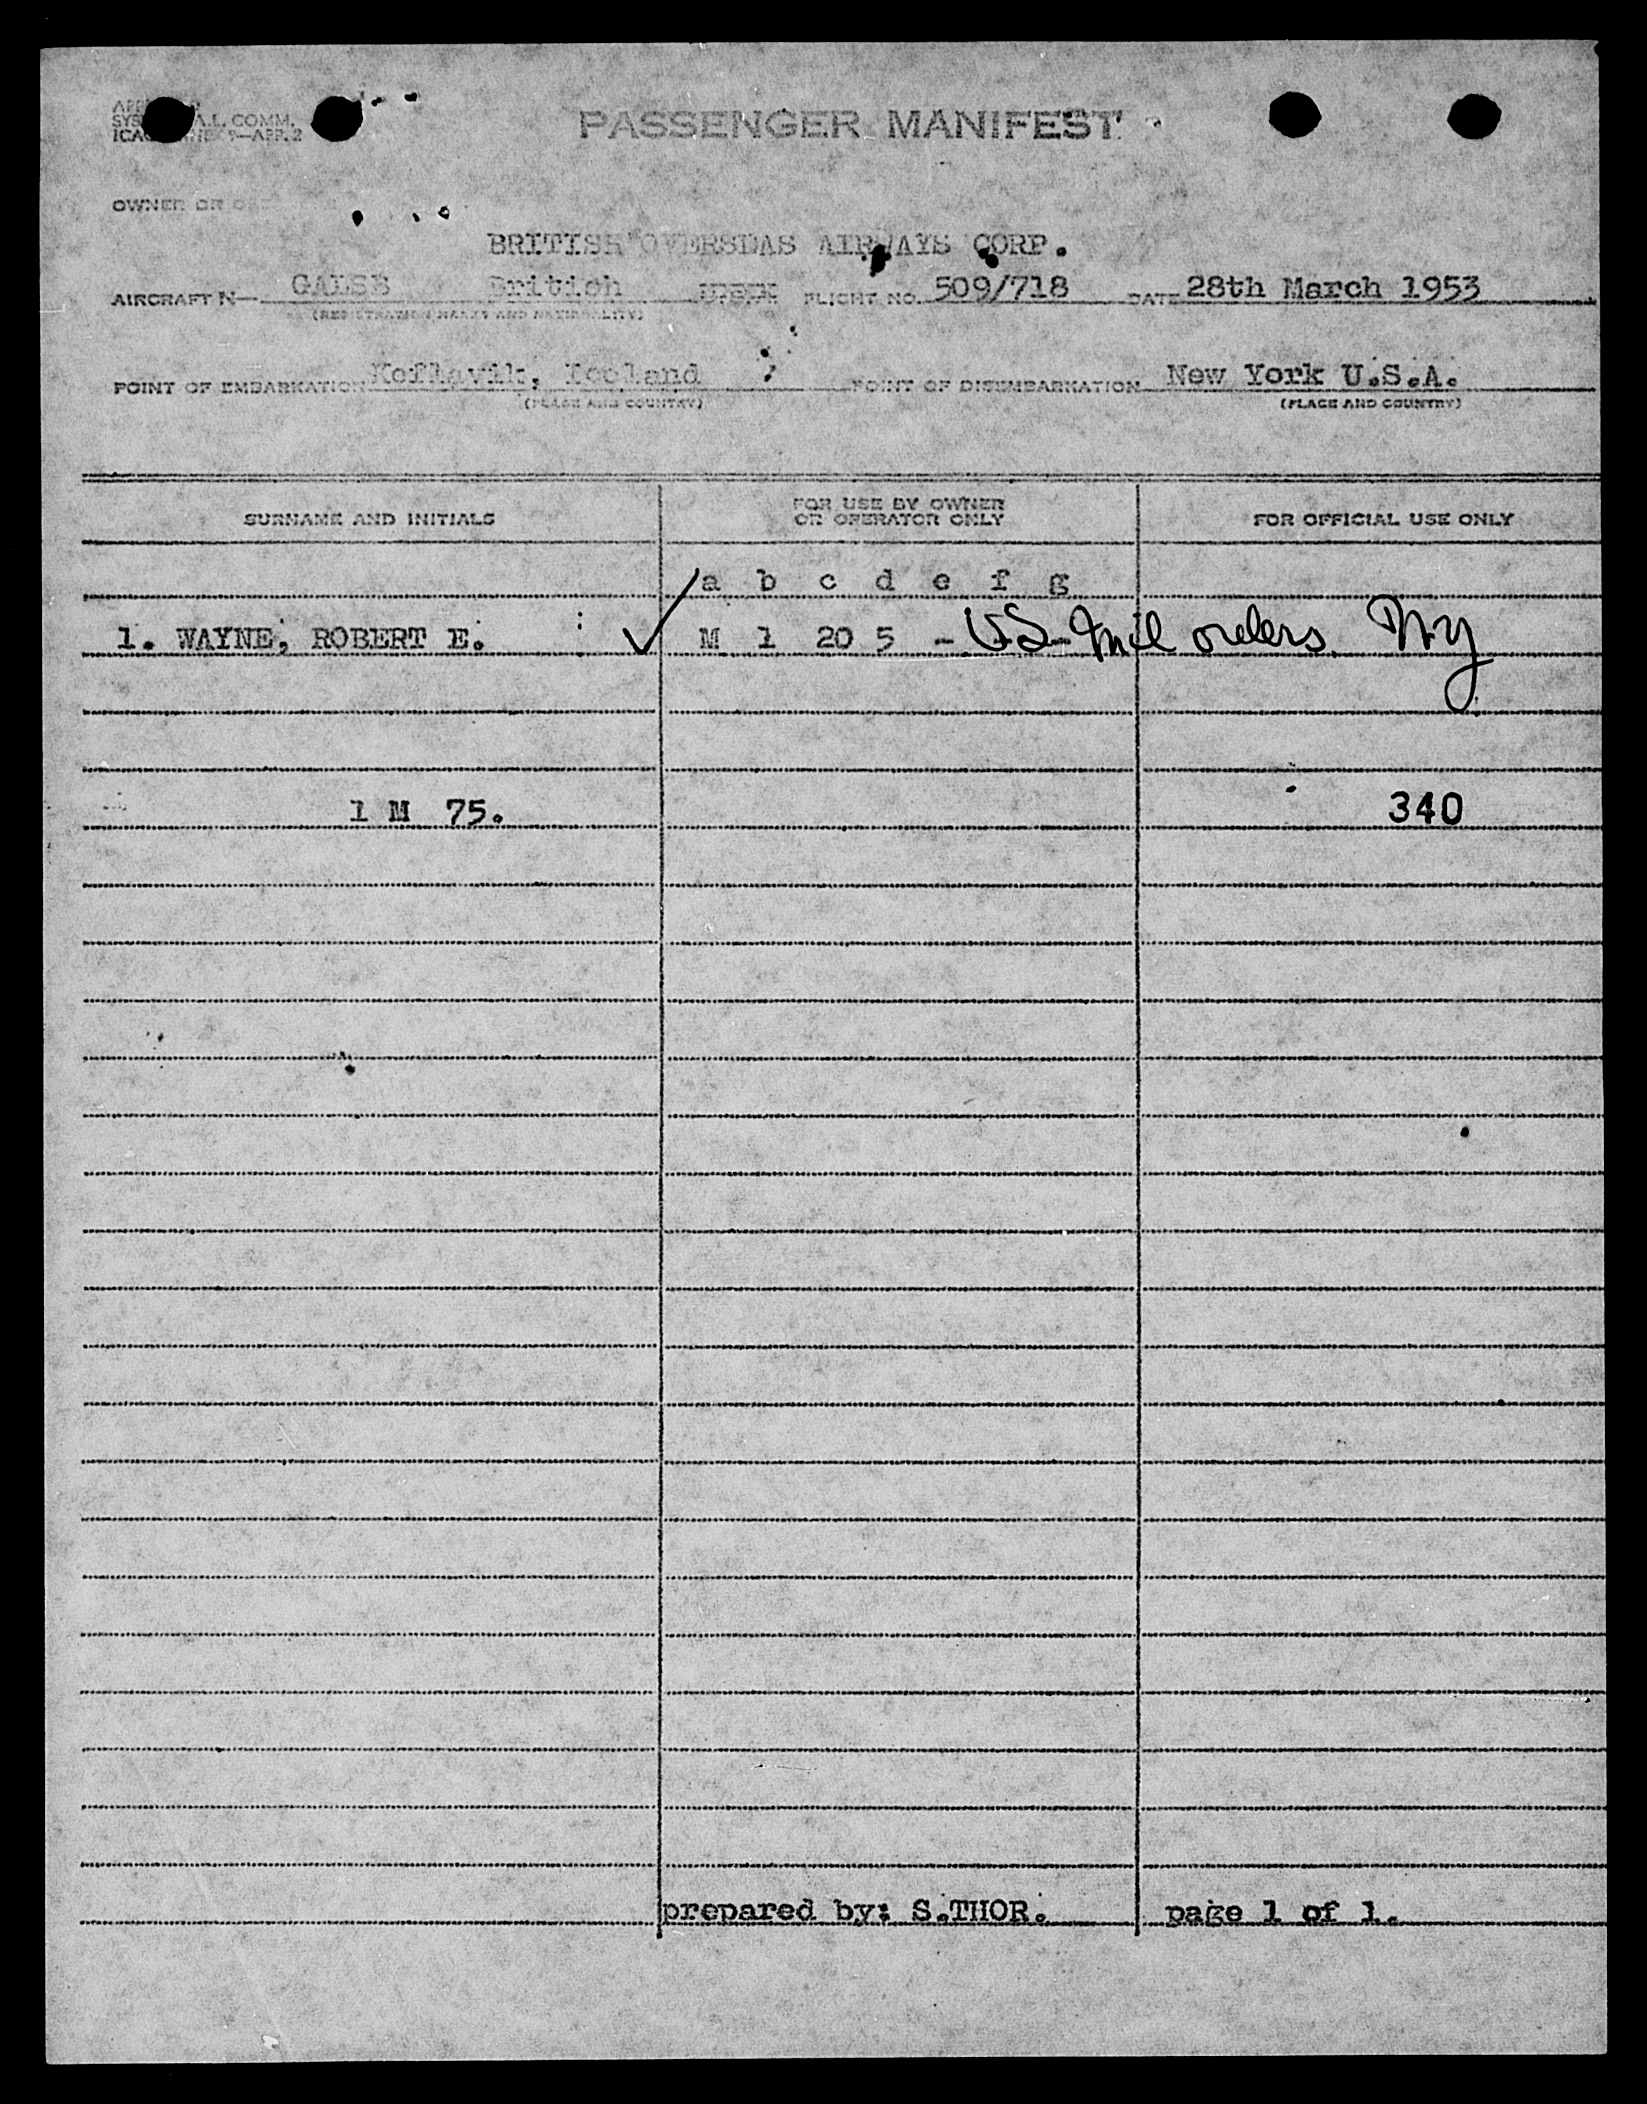 A.L. COMM.
9—APP. 2
PASSENGER MANIFEST
OWNER OR
BRITISH OVERSEAS AIRWAYS CORP.
AIRCRAFT N— GALSB British FLIGHT NO. 509/718 DATE 28th March 1953
(REGISTRATION MARKS AND NATIONALITY)
POINT OF EMBARKATION Keflavik, Iceland POINT OF DISEMBARKATION New York U.S.A.
(PLACE AND COUNTRY) (PLACE AND COUNTRY)
SURNAME AND INITIALS FOR USE BY OWNER OR OPERATOR ONLY FOR OFFICIAL USE ONLY
a b c d e f g
1. WAYNE, ROBERT E. : ✓ M 1 20 5 - US-Mil orders
1 M 75. 340
prepared by: S.THOR. page 1 of 1.